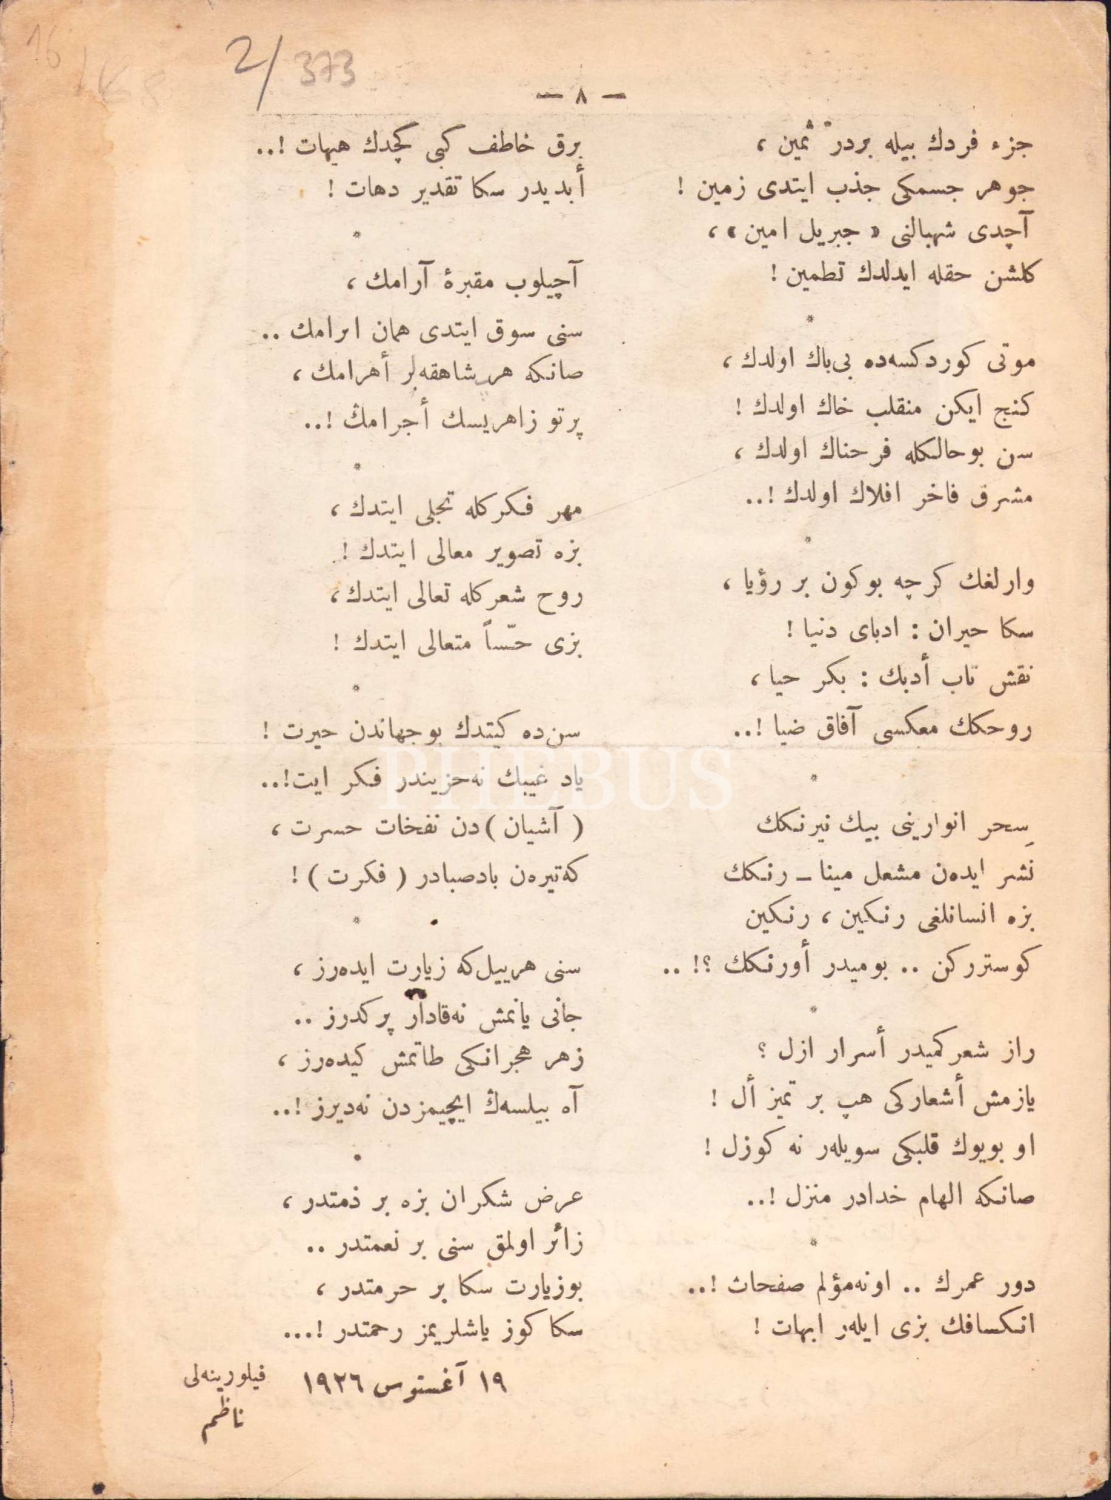 2/373
— ٨ —
جزء فردك بيله بردر ثمين ،
جوهر جسمكی جذب ايتدی زمين !
آچدی شهبالنی « جبريل امين » ،
كلشن حقله ايدلدك تطمين !
موتی كوردكسه‌ده بی‌باك اولدك ،
كنج ايكن منقلب خاك اولدك !
سن بوحالكله فرحناك اولدك ،
مشرق فاخر افلاك اولدك !..
وارلغك كرچه بوكون بر رؤيا ،
سكا حيران : ادبای دنيا !
نقش تاب أدبك : بكر حيا ،
روحكك معكسی آفاق ضيا !..
سِحر انوارينی بيك نيرنكك
نشر ايده‌ن مشعل مينا ـ رنكك
بزه انسانلغی رنكين ، رنكين
كوستررکن .. بوميدر أورنكك ؟! ..
راز شعركميدر أسرار ازل ؟
يازمش أشعاركی هپ بر تميز أل !
او بويوك قلبكی سويله‌ر نه كوزل !
صانكه الهام خدادر منزل !..
دور عمرك .. اونه‌مؤلم صفحات !..
انكسافك بزی ايله‌ر ابهات !
برق خاطف كبی كچدك هيهات !..
أبديدر سكا تقدير دهات !
آچيلوب مقبرۀ آرامك ،
سنی سوق ايتدی همان ابرامك ..
صانكه هر شاهقه‌لر أهرامك ،
پرتو زاهريسك أجرامڭ !..
مهر فكركله تجلی ايتدك ،
بزه تصوير معالی ايتدك !
روح شعركله تعالی ايتدك ،
بزی حسّاً متعالی ايتدك !
سن‌ده كيتدك بوجهاندن حيرت !
ياد غيبك نه‌حزيندر فكر ايت!..
( آشيان ) دن نفخات حسرت ،
كه‌تيره‌ن بادصبادر ( فكرت ) !
سنی هرييل‌كه زيارت ايده‌رز ،
جانی يانمش نه‌قادار پركدرز ..
زهر هجرانكی طاتمش كيده‌رز ،
آه بيلسه‌ڭ ايچيمزدن نه‌ديرز !..
عرض شكران بزه بر ذمتدر ،
زائر اولمق سنی بر نعمتدر ..
بوزيارت سكا بر حرمتدر ،
سكا كوز ياشلريمز رحمتدر !...
١٩ آغستوس ١٩٢٦
فيلورينه‌لی
ناظم
PHEBUS